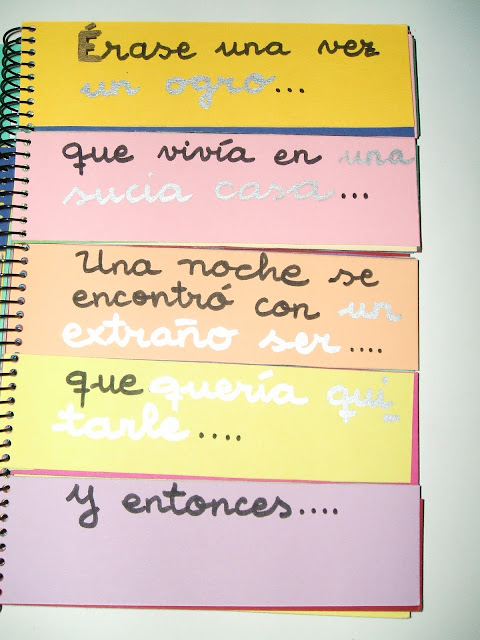 Érase una vez
un ogro...
que vivía en una
sucia casa...
Una noche se
encontró con un
extraño ser....
que quería qui
tarle....
Y entonces....